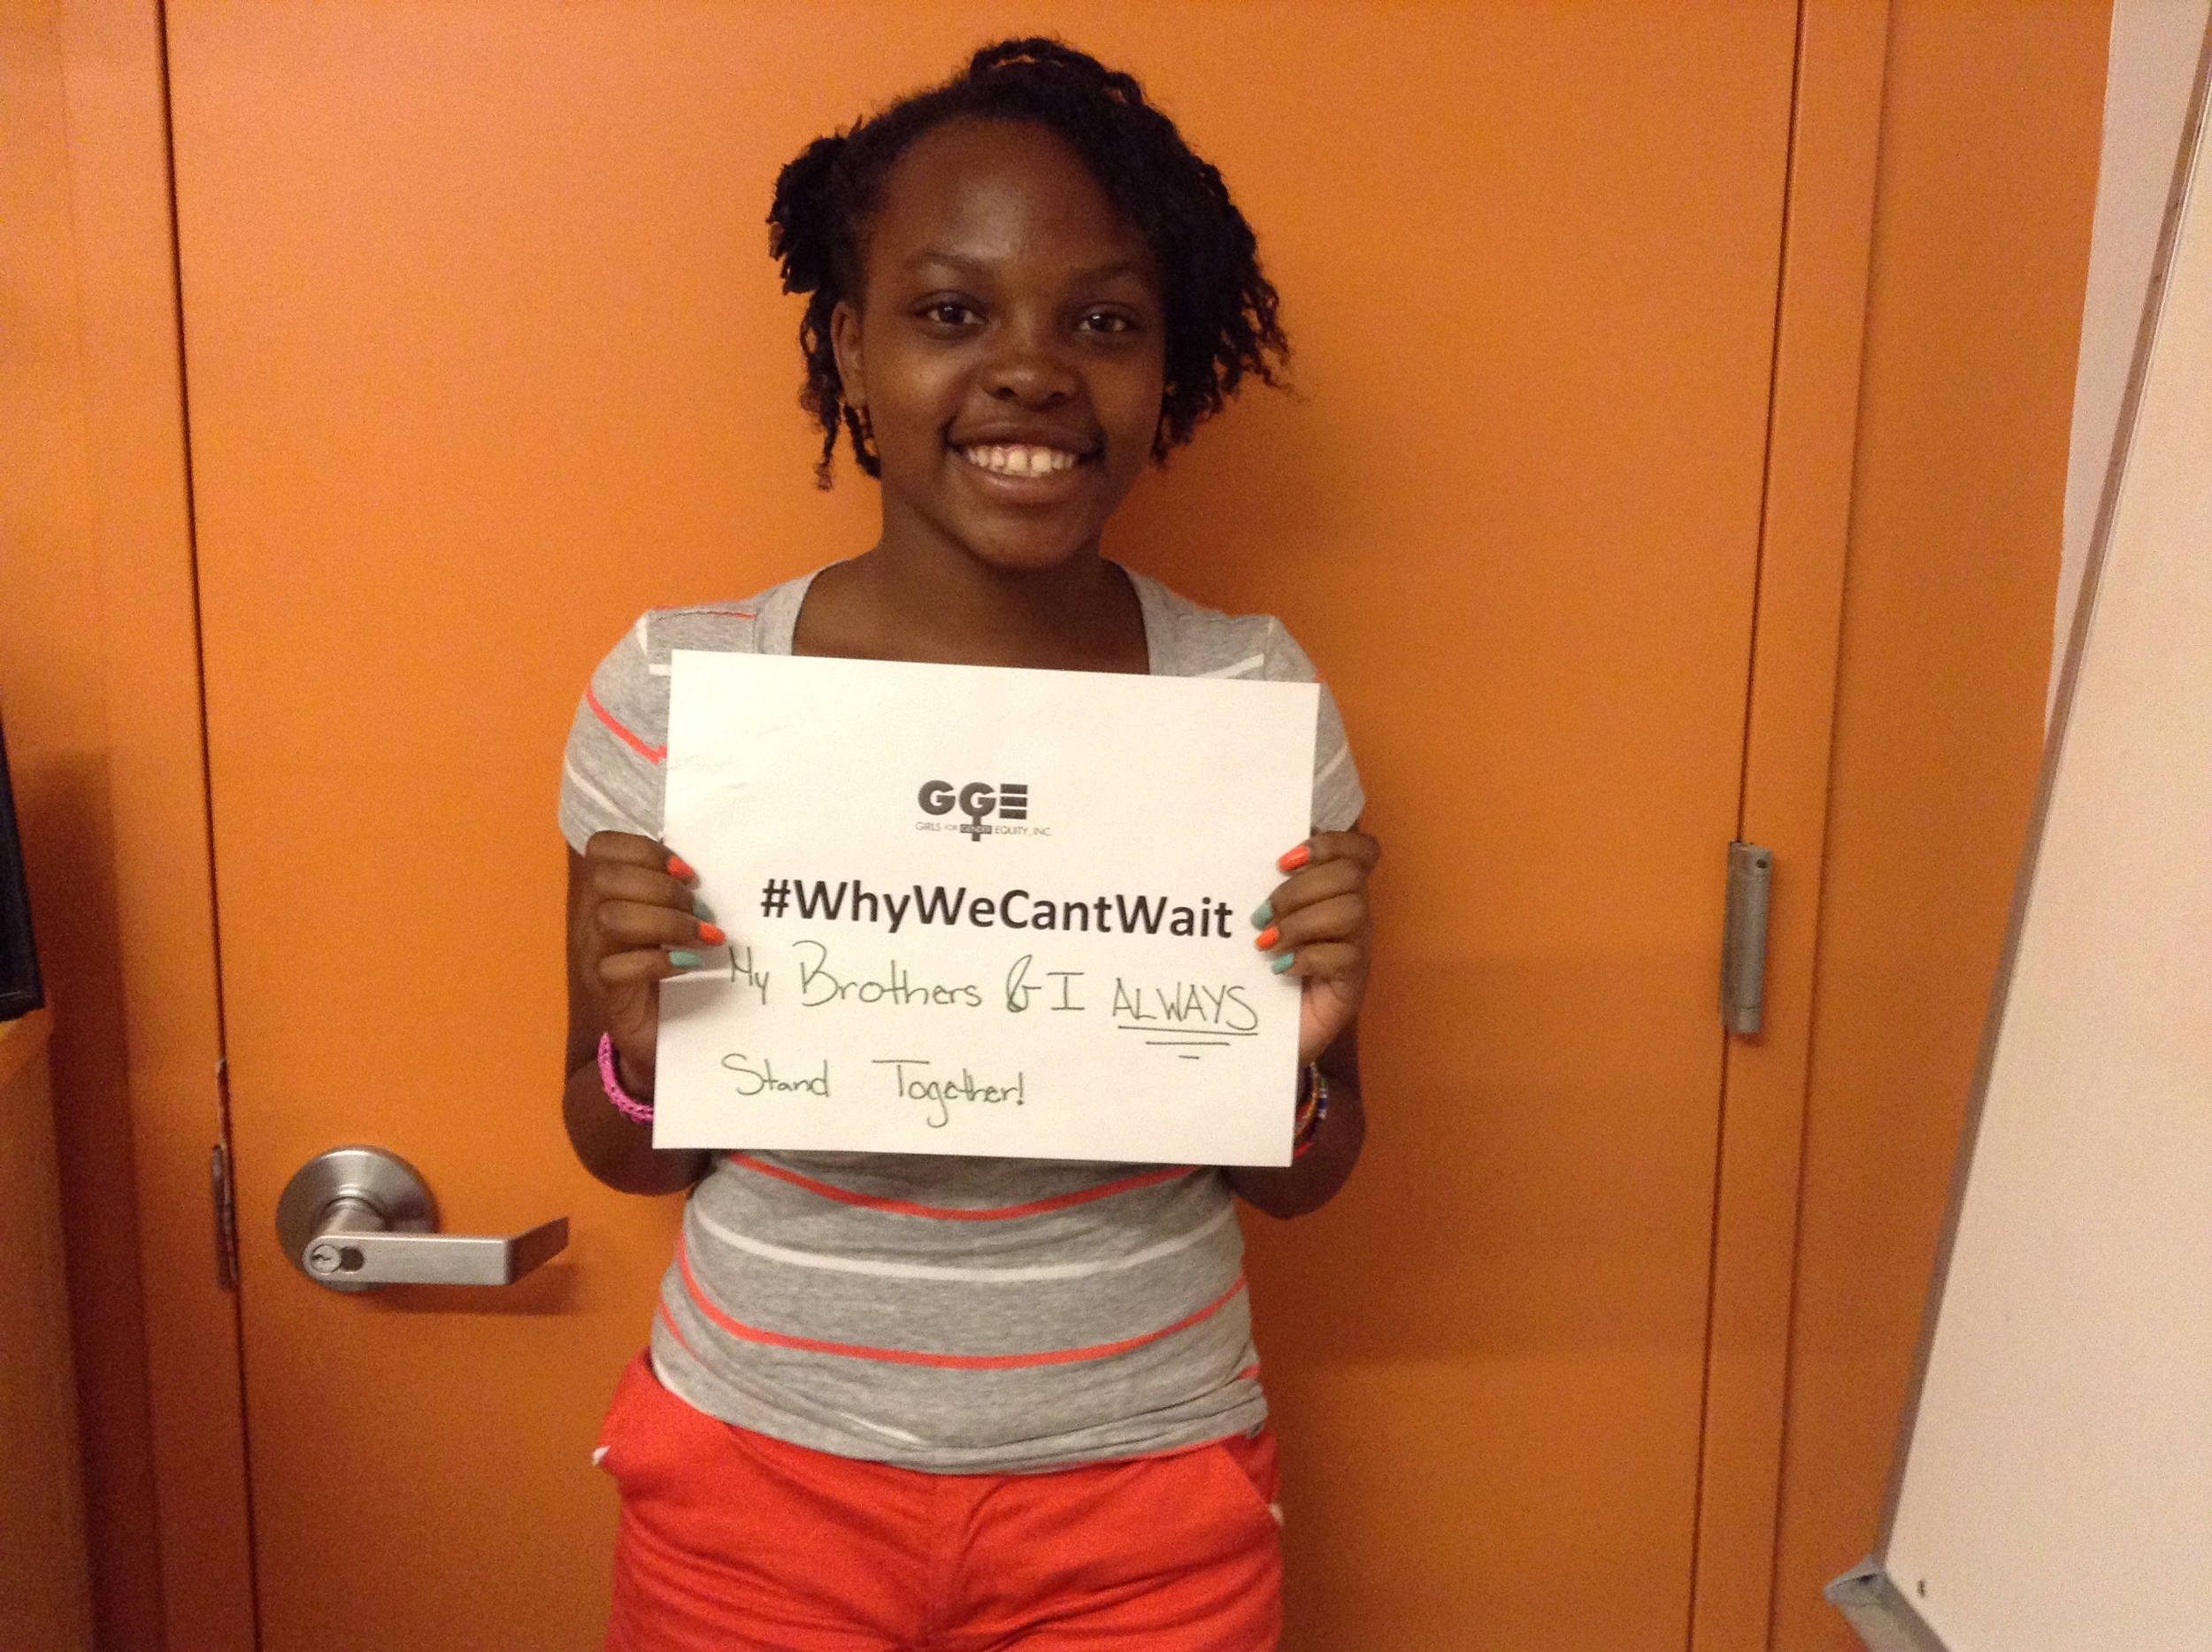 GGE
GIRLS FOR GENDER EQUITY, INC.
#WhyWeCantWait
My Brothers & I ALWAYS
Stand Together!